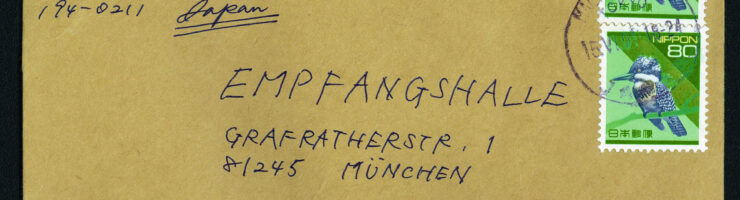 194-0211 Japan
日本郵便
NIPPON
80
日本郵便
EMPFANGSHALLE
GRAFRATHERSTR. 1
81245 MÜNCHEN